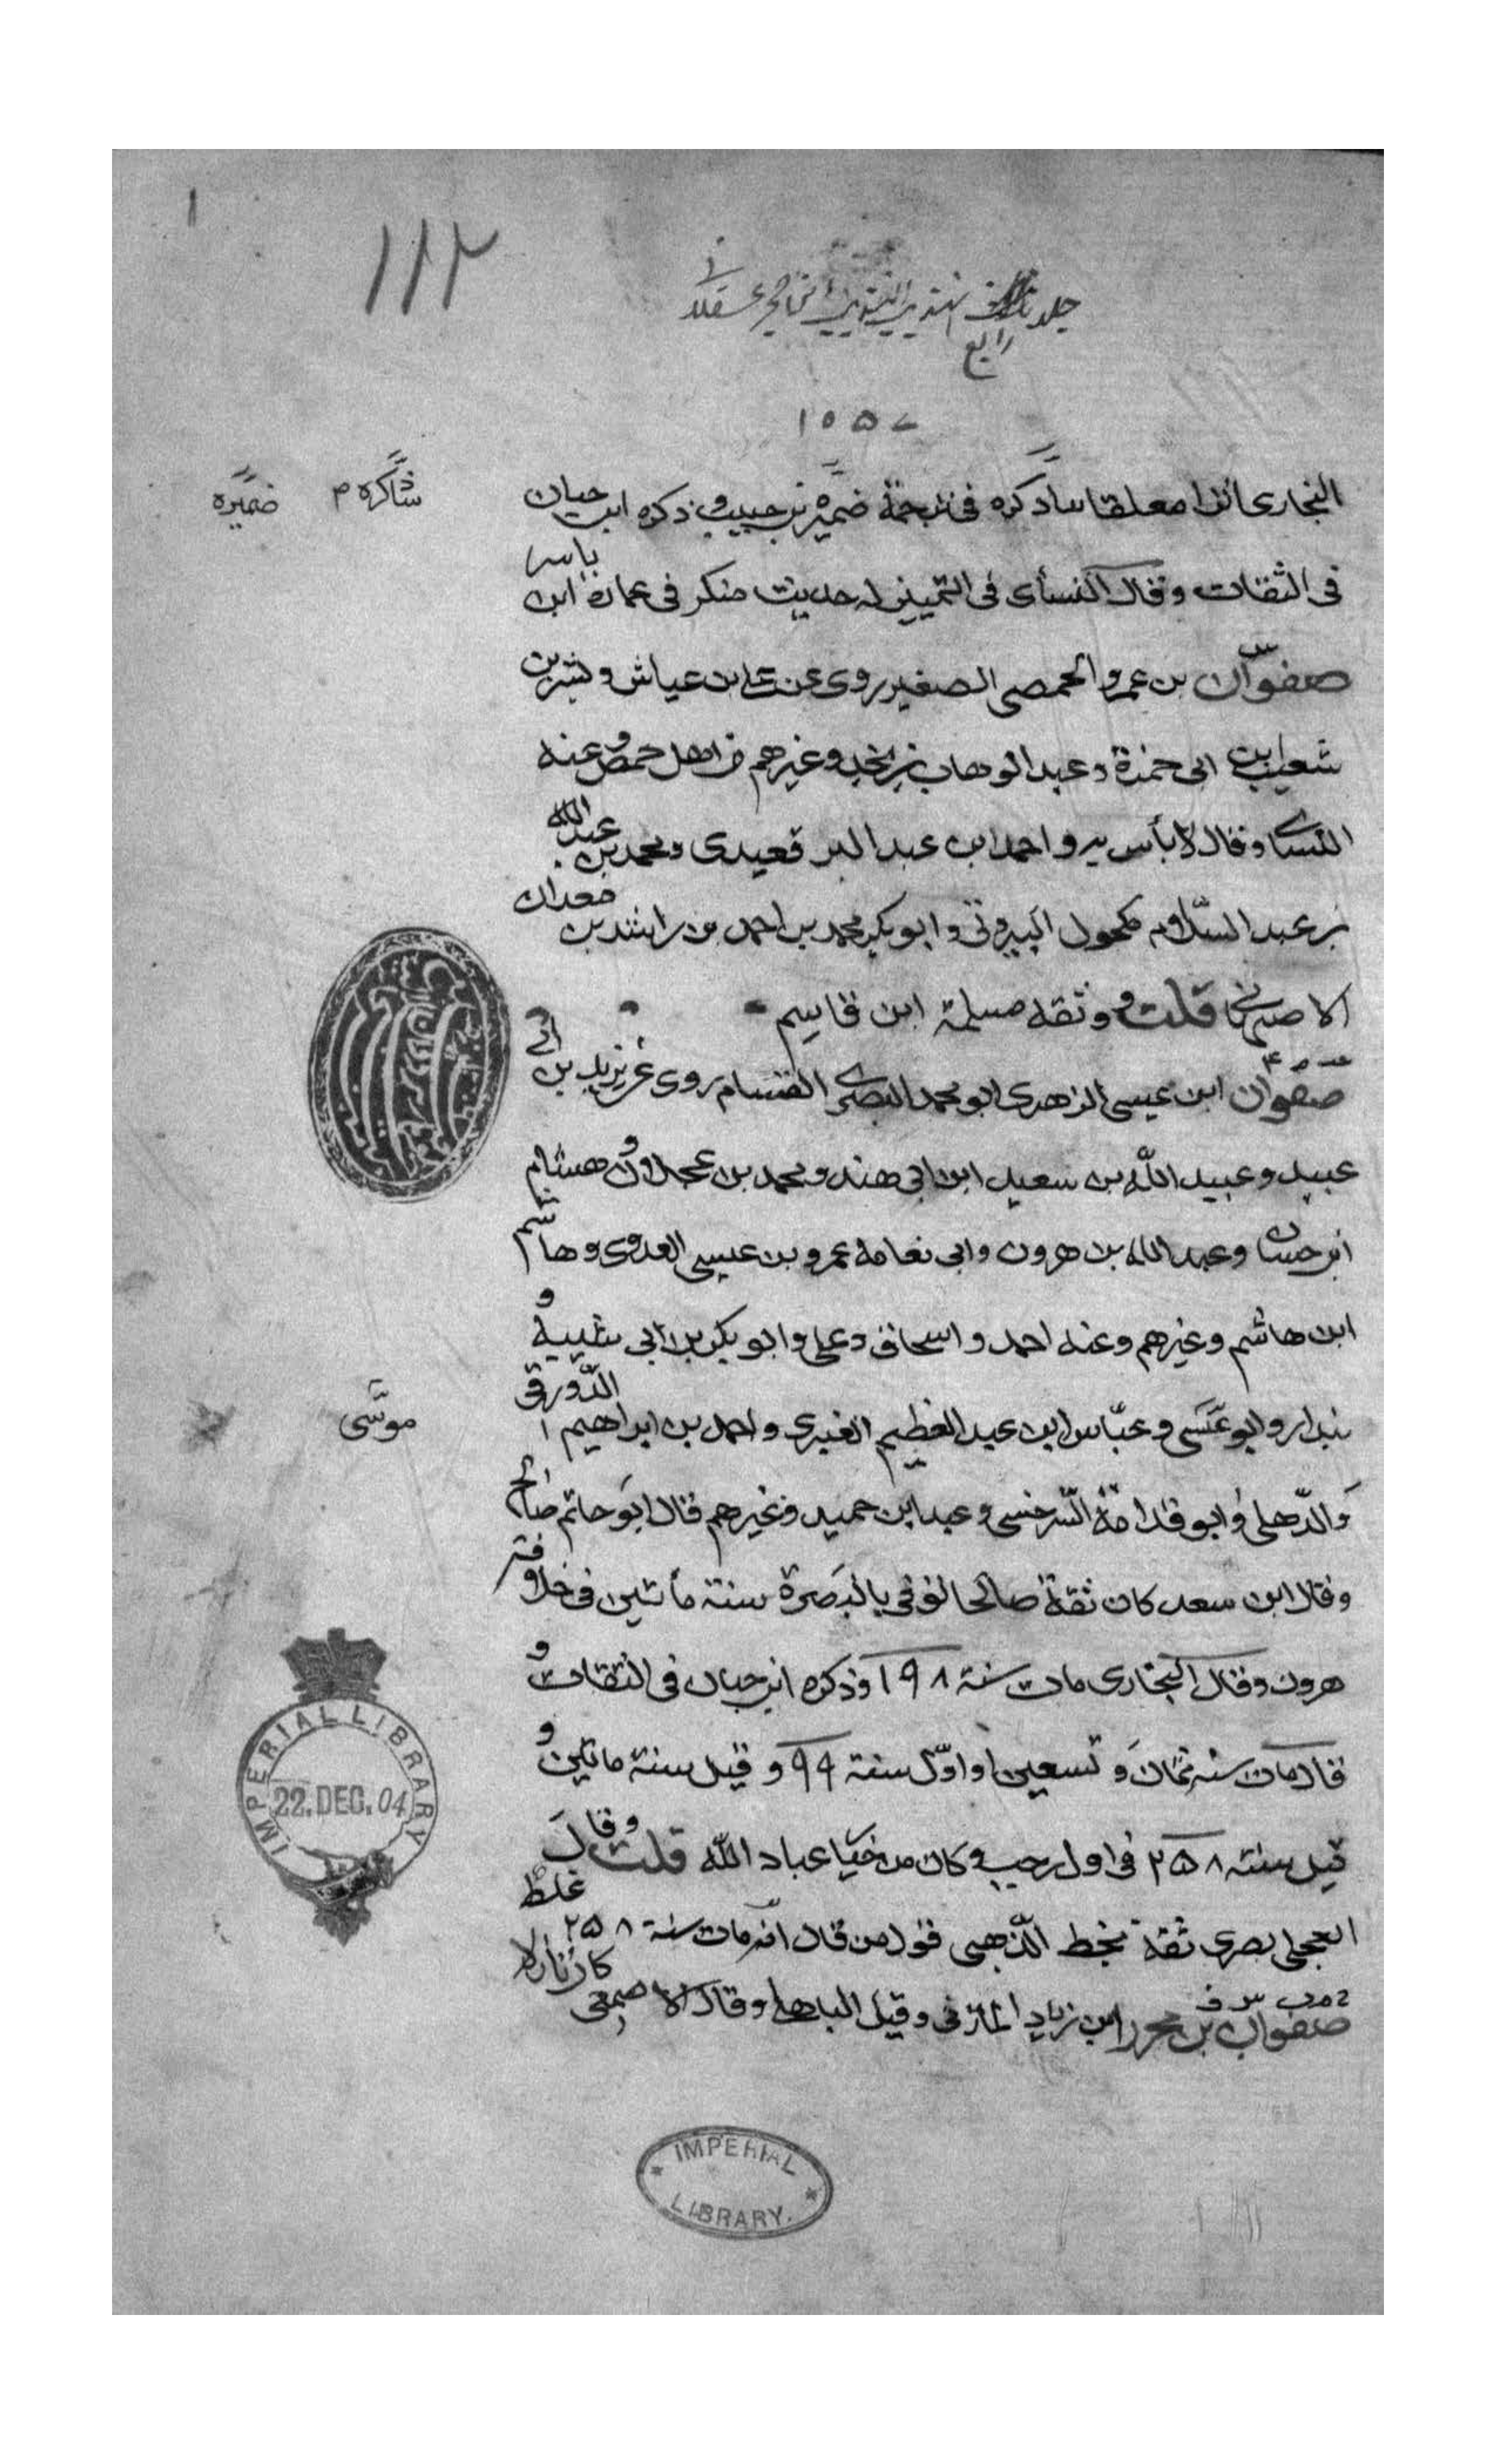 ١
١١٢
جلد تهذيب التهذيب حجر عسقلانى
رابع
١٥٥٧
البخارى اثرا معلقا سا ذكره فى ترجمة ضميرة بن حبيب و ذكره ابن حبان
شاكره م ضميره
فى الثقات وقال النسأى فى التمييز له حديث منكر فى عمار ابن ياسر
صفوان بن عمرو الحمصى الصغير روى عن على بن عياش وبشر بن
شعيب بن ابى حمزة وعبد الوهاب بن نجده وغيرهم من اهل حمص وعنه
النساى وقال لا بأس به و احمد ابن عبد البر قعيدى ومحمد بن عبد الله
بن عبد السلام مكحول البيروتى وابو بكر محمد بن احمد بن راشد بن معدان
الاصبهانى قلت وثقه مسلمة ابن قاسم
صفوان ابن عيسى الزهرى ابو محمد البصرى القسام روى عن يزيد بن ابى
عبيد وعبيد الله بن سعيد ابن ابى هند ومحمد بن عجلان و هشام
ابن حسان وعبد الله بن هرون وابى نعامه عمرو بن عيسى العدوى وهاشم
ابن هاشم وغيرهم وعنه احمد و اسحاق وعلى وابو بكر بن ابى شيبة و
بندار وابو عسى وعباس ابن عبد العظيم العنبرى واحمد بن ابراهيم الدورقى
موسى
والذهلى وابو قدامة السرخسى وعبد ابن حميد وغيرهم قال ابو حاتم صالح
وقال ابن سعد كان ثقة صالحا توفى بالبصرة سنة مأتين فى خلافة
هرون وقال البخارى مات سنة ١٩٨ وذكره ابن حبان فى الثقات و
قال مات سنة ثمان و تسعين او اول سنة ٩٩ و قيل سنة ماتين و
قيل سنة ٢٥٨ فى اول رجب وكان من خيار عباد الله قلت وقال
العجلى بصرى ثقة بخط الذهبى قول من قال انه مات سنة ٢٥٨ غلط
صفوان بن محرز ابن زياد المازنى وقيل الباهلى وقال الاصمعى كان نازلا
IMPERIAL LIBRARY
22.DEC.04
IMPERIAL
LIBRARY.